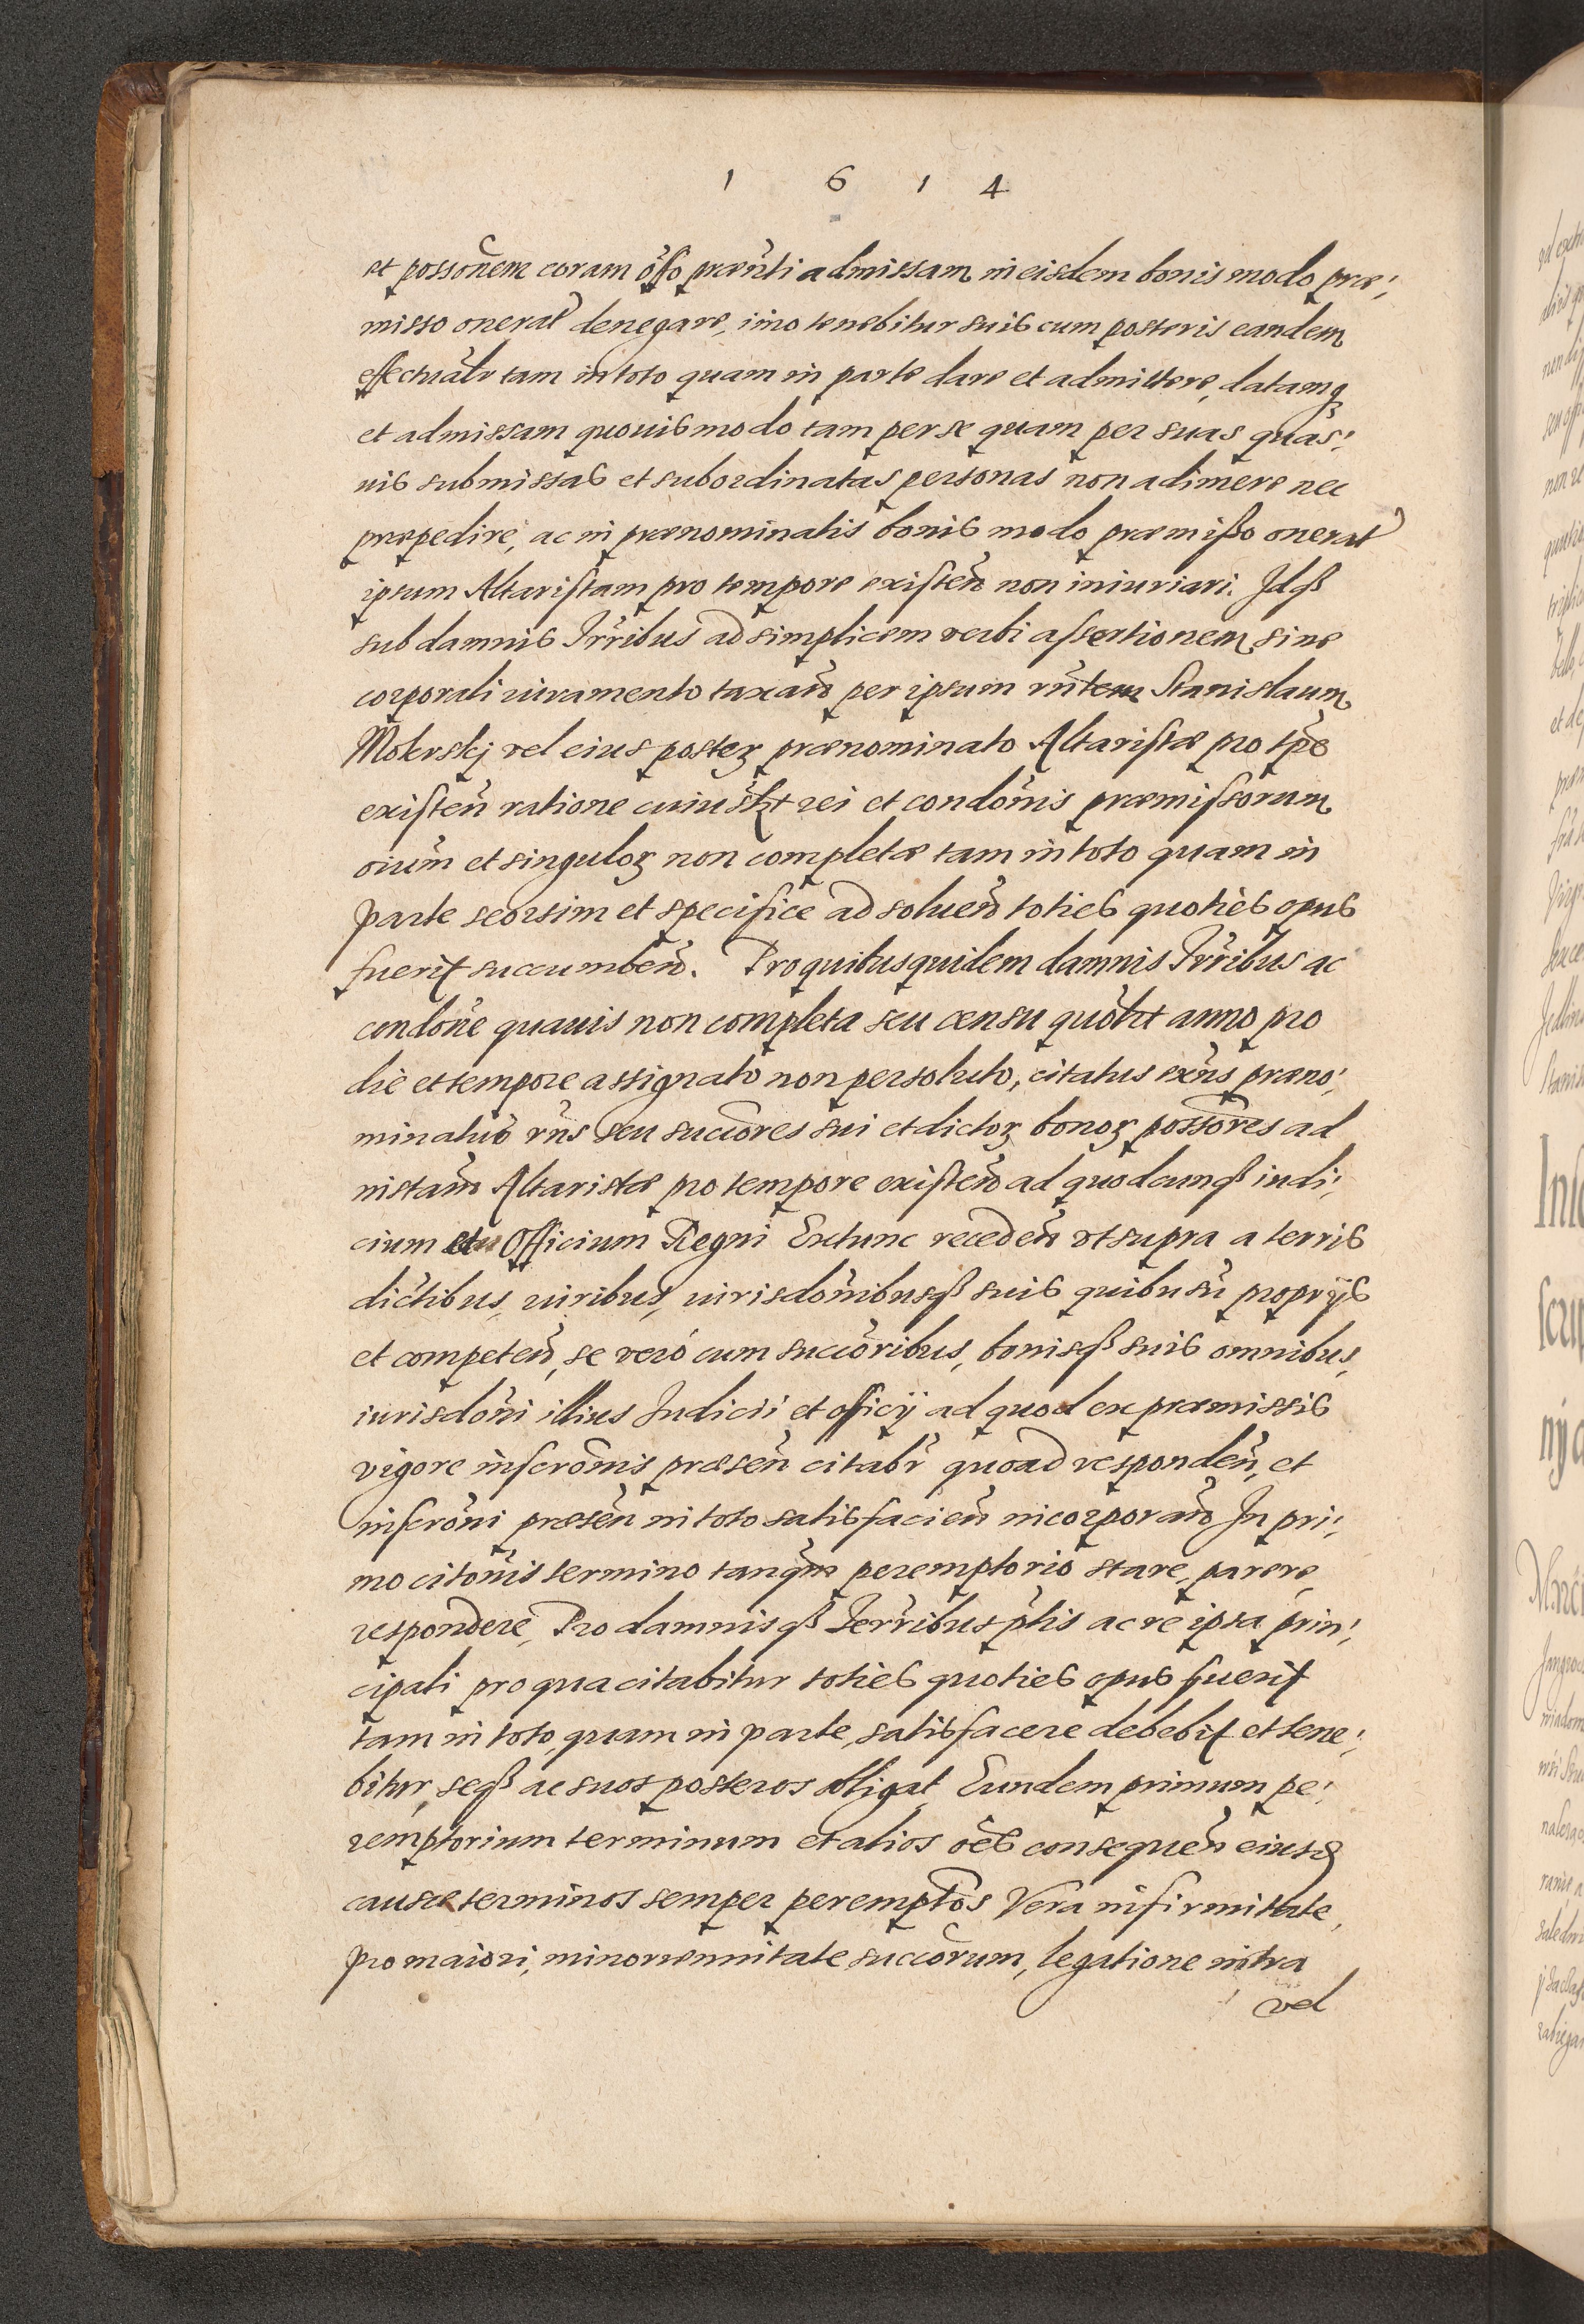 1 6 1 4
et possoñem coram offo præñti admissam in eisdem bonis modo præ:,
misso onerat denegare, imo tenebitur suis cum posteris eandem
effectualr tam in toto quam in parte dare et admittere, datamq
et admissam quouismodo tam per se quam per suas quas:,
uis submissas et subordinatas personas non adimere nec
præpedire, ac in prænominatis bonis modo præmißo onerat
ipsum Altaristam pro tempore existeñ non iniuriari. Idqß
sub damnis Trribus ad simplicem verbi assertionem sine
corporali iuramento taxañ per ipsum rñtem Stanislaum
Mokrskj vel eius posterꝫ prænominato Altaristæ pro tpe
existeñ ratione cuiuslꝫt rei et condonis præmissorum
oium et singuloꝝ non completæ tam in toto quam in
parte seorsim et specifice ad soluenð toties quoties opus
fuerit succumbeñ. Pro quibusquidem damnis Trribus ac
condone quauis non completa seu censu quolꝫt anno pro
die et tempore assignato non persoluto, citatus exñs præno:,
minatus rñs seu succores sui et dictoꝝ bonoꝝ possores ad
instañ Altaristæ pro tempore existeñ ad quodcunqß iudi:,
cium Officium Regni Extunc recedeñ vt supra a terris
dictibus, iuribus, iurisdonibusqß suis quibusũ proprijs
et competeñ, se vero cum succoribus, bonisqß suis omnibus,
iurisdoni illius Judicii et officij ad quod ex præmissis
vigore inscronis præseñ citabr quoad respondeñ, et
inscroni præseñ in toto satisfacieñ incorporañ In pri:,
mo citonis termino tanqm peremptorio stare, parere,
respondere, Pro damnisqß Terribus ptis ac re ipsa prin:,
cipali pro qua citabitur toties quoties opus fuerit
tam in toto, quam in parte, satisfacere debebit et tene:,
bitur, seqß ac suos posteros obligat Eundem primum pe:,
remptorium terminum et alios oes consequeñ eiusð
causæ terminos semper peremptos Vera infirmitate,
pro maiori, minorennitate succorum, legatione intra
vel